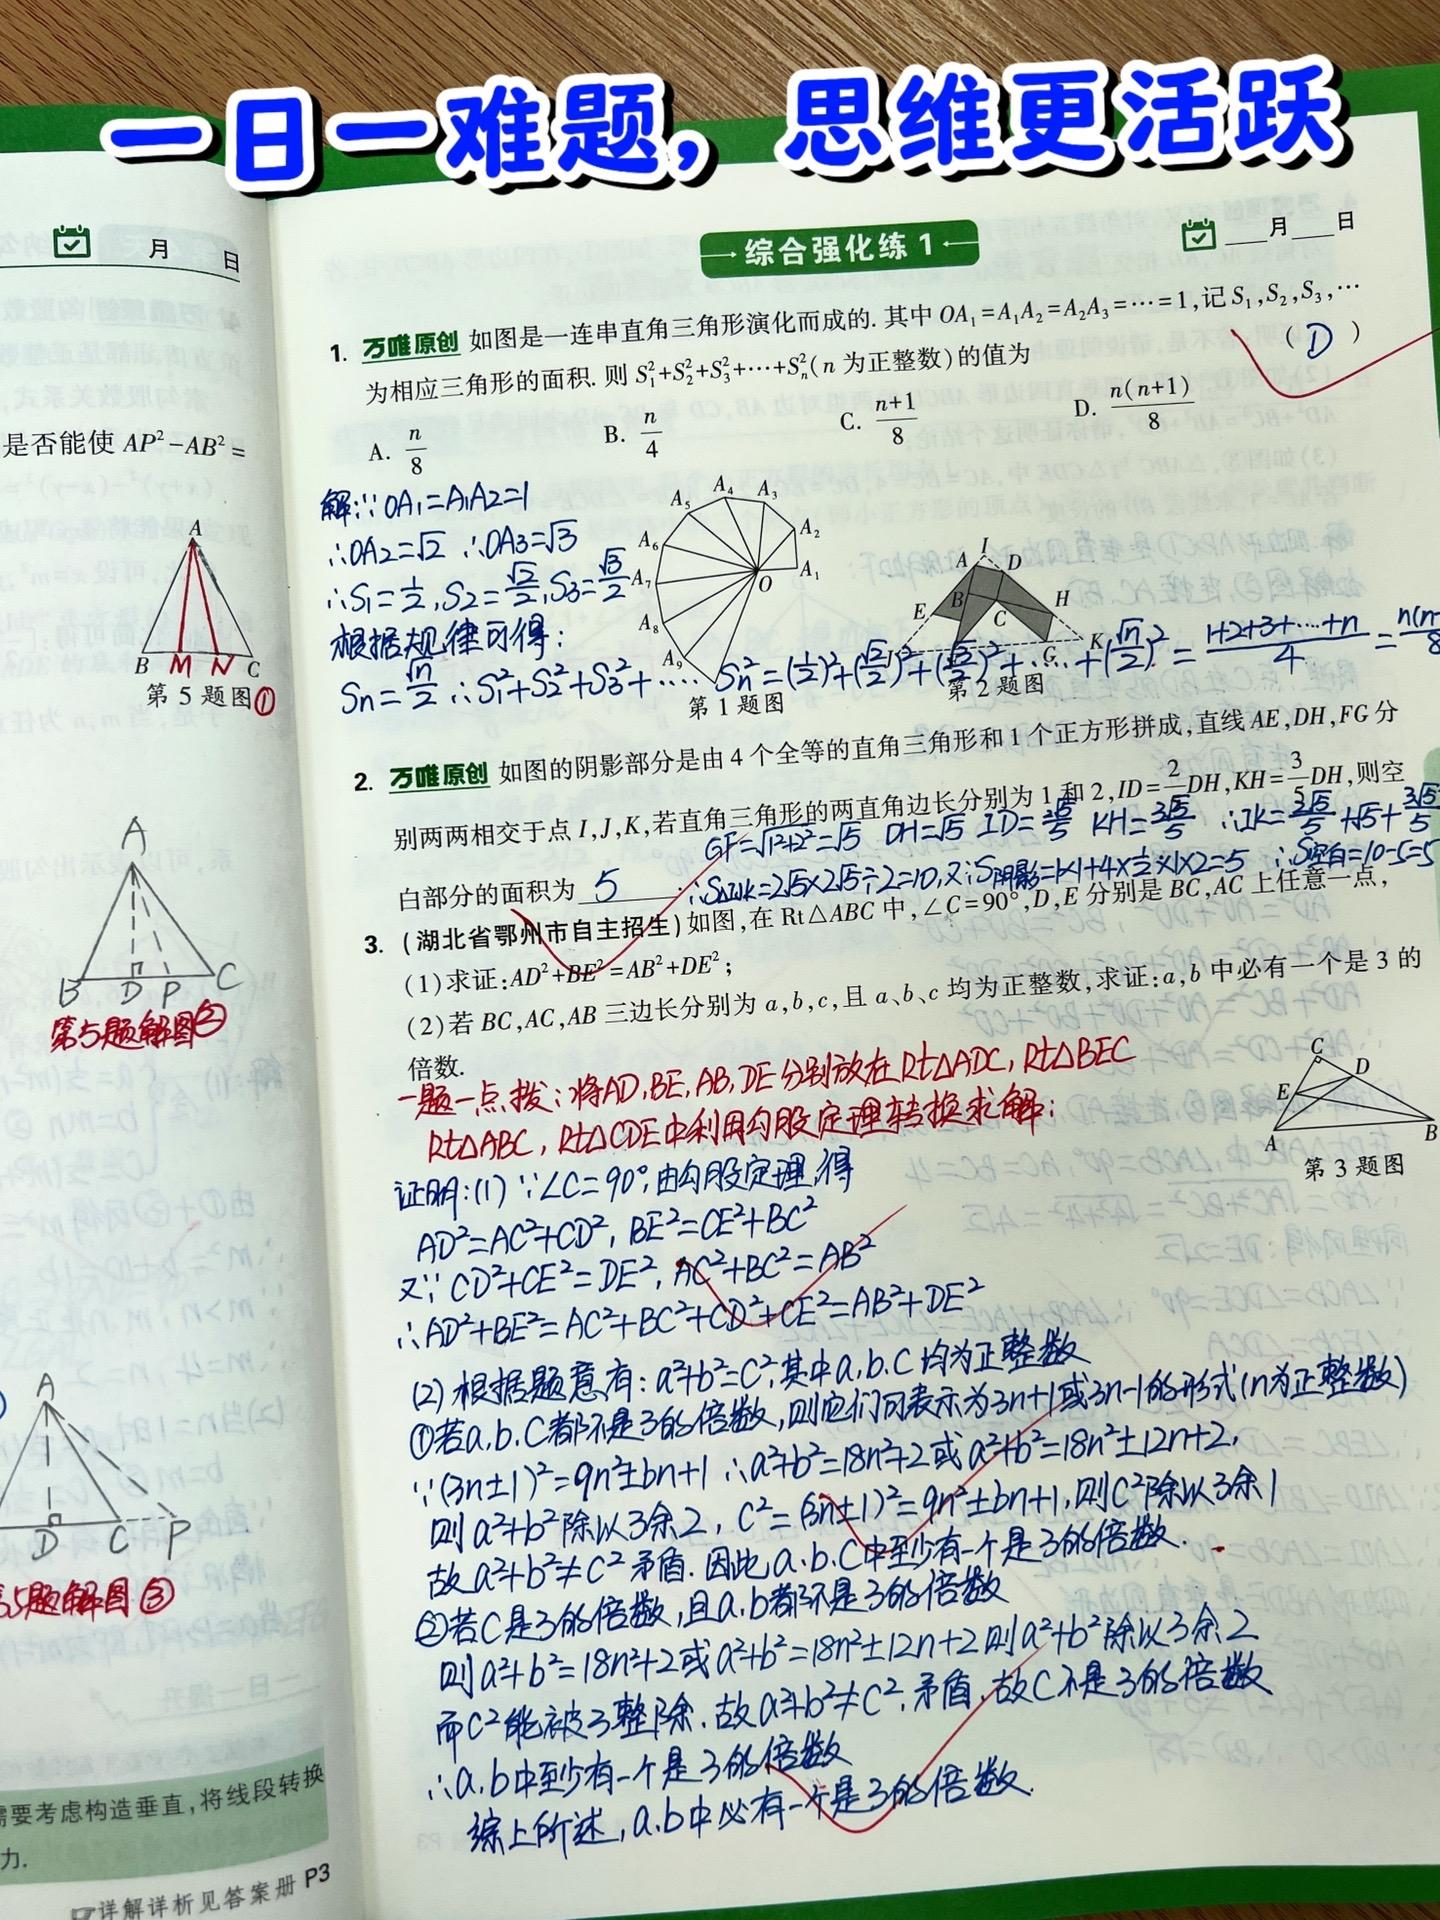 一日一难题，思维更活跃
月 日
是否能使 AP²-AB²=
A
B M N C
第 5 题图①
A
B D P C
第5题解图②
A
D C P
5题解图③
需要考虑构造垂直,将线段转换
力.
详解详析见答案册 P3
综合强化练 1
月 日
1. 万唯原创 如图是一连串直角三角形演化而成的. 其中 OA₁=A₁A₂=A₂A₃=…=1,记 S₁,S₂,S₃,…
为相应三角形的面积. 则 S₁²+S₂²+S₃²+…+Sₙ²(n 为正整数)的值为 ( D )
A. n/8 B. n/4 C. (n+1)/8 D. n(n+1)/8
解:∵OA₁=A₁A2=1
∴OA2=√2 ∴OA3=√3
∴S₁=1/2,S2=√2/2,S3=√3/2
根据规律可得:
Sn=√n/2 ∴S₁²+S2²+S3²+…… Sn²=(1/2)²+(√2/2)²+(√3/2)²+……+(√n/2)²=(1+2+3+…+n)/4=
A₅ A₄ A₃
A₆ A₂
A₇ O A₁
A₈
A₉
第 1 题图
I
A D
E B C H
G K
第 2 题图
2. 万唯原创 如图的阴影部分是由 4 个全等的直角三角形和 1 个正方形拼成,直线 AE,DH,FG 分
别两两相交于点 I,J,K,若直角三角形的两直角边长分别为 1 和 2,ID=2/5DH,KH=3/5DH,则空
GF=√1²+2²=√5 DH=√5 ID=2√5/5 KH=3√5/5 ∴IK=2√5/5+√5+3√5/5
白部分的面积为 5 .
∴S△IJK=2√5×2√5÷2=10,又∵S阴影=1×1+4×1/2×1×2=5 ∴S空白=10-5=5
3. (湖北省鄂州市自主招生)如图,在 Rt△ABC 中,∠C=90°,D,E 分别是 BC,AC 上任意一点,
(1)求证:AD²+BE²=AB²+DE²;
(2)若 BC,AC,AB 三边长分别为 a,b,c,且 a、b、c 均为正整数,求证:a,b 中必有一个是 3 的
倍数.
一题一点拨:将AD,BE,AB,DE分别放在Rt△ADC,Rt△BEC
Rt△ABC,Rt△CDE中利用勾股定理转换求解:
C
E D
A B
第 3 题图
证明:(1)∵∠C=90°,由勾股定理,得
AD²=AC²+CD²,BE²=CE²+BC²
又∵CD²+CE²=DE²,AC²+BC²=AB²
∴AD²+BE²=AC²+BC²+CD²+CE²=AB²+DE²
(2)根据题意有:a²+b²=c²,其中a.b.c均为正整数
①若a.b.c都不是3的倍数,则它们可表示为3n+1或3n-1的形式(n为正整数)
∵(3n±1)²=9n²±6n+1 ∴a²+b²=18n²+2或a²+b²=18n²±12n+2,
则a²+b²除以3余2,c²=(3n±1)²=9n²±6n+1,则c²除以3余1
故a²+b²≠c²矛盾.因此a.b.c中至少有一个是3的倍数.
②若c是3的倍数,且a,b都不是3的倍数
则a²+b²=18n²+2或a²+b²=18n²±12n+2则a²+b²除以3余2
而c²能被3整除.故a²+b²≠c²,矛盾,故c不是3的倍数
∴a.b中至少有一个是3的倍数
综上所述,a.b中必有一个是3的倍数.